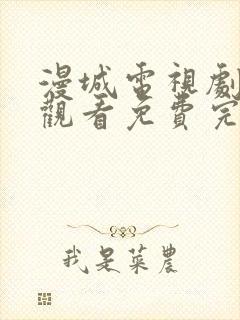 漫城電視劇
觀看免費完
我是菜農